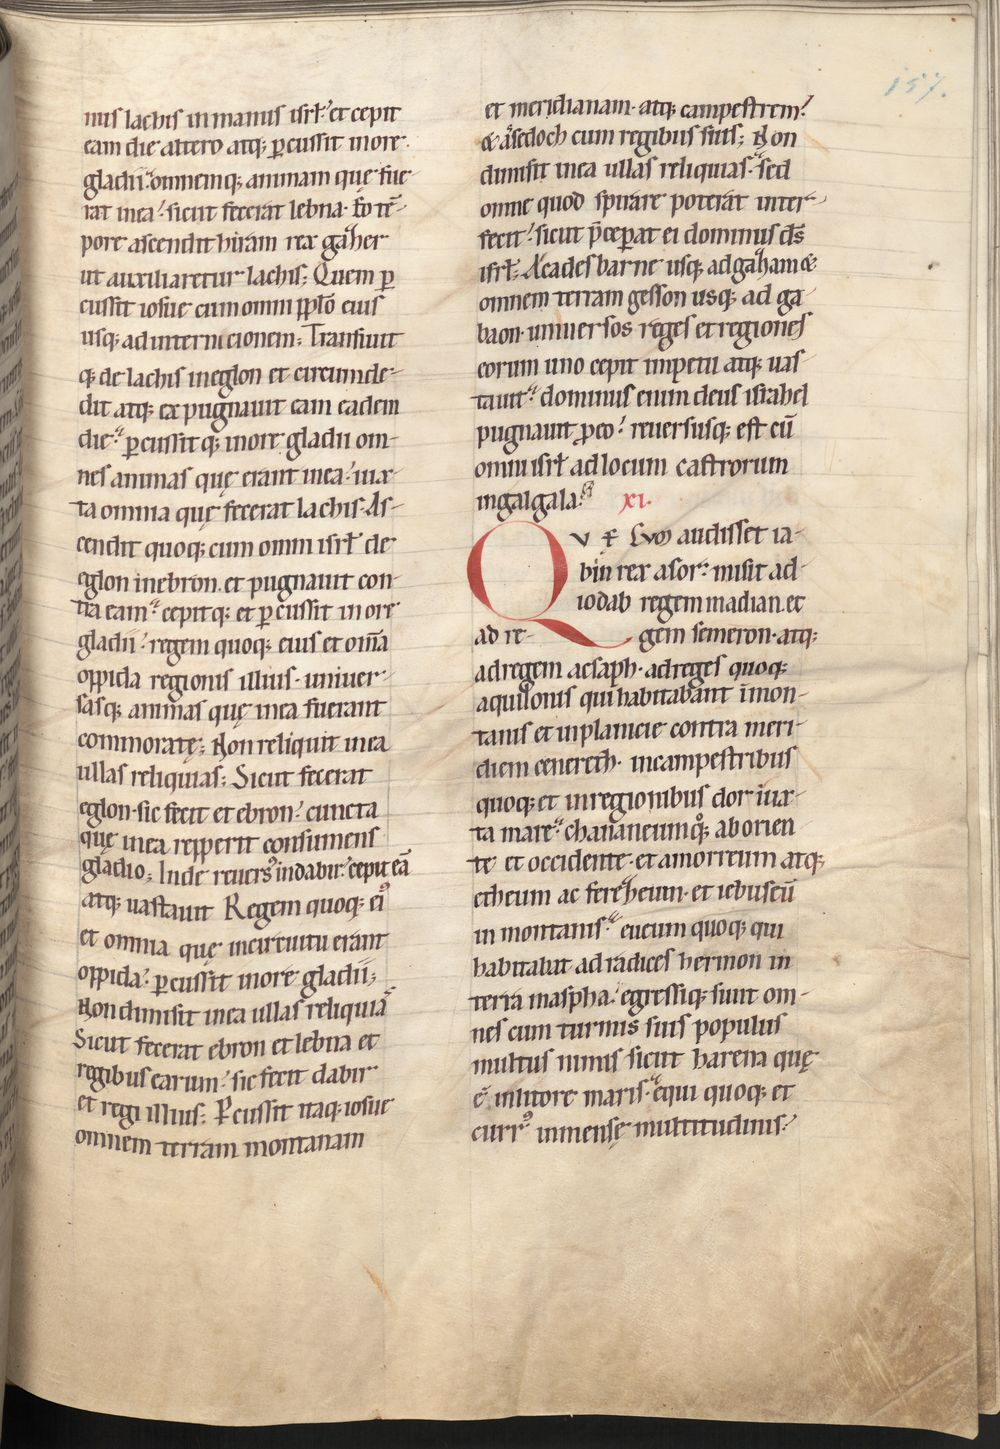 157.
nus lachis in manus isrł. et cepit
eam die altero atq; ꝑcussit in ore
gladii. omnemq; animam quę fue
rat in ea. sicut fecerat lebna. Eo tē-
pore ascendit hiram rex gaher
ut auxiliaretur lachis; Quem ꝑ
cussit iosue cum omni pplō eius
usq; ad internicionem; Transiuit
q; de lachis in eglon et circumde-
dit atq; expugnauit eam eadem
die. ꝑcussitq; in ore gladii om-
nes animas quę erant in ea. iux-
ta omnia quę fecerat lachis. As-
cendit quoq; cum omni isrł de
eglon in ebron. et pugnauit con-
tra eam. cepitq; et ꝑcussit in ore
gladii. regem quoq; eius et om̄a
oppida regionis illius. uniuer-
sasq; animas quę in ea fuerant
commoratę; Non reliquit in ea
ullas reliquias; Sicut fecerat
eglon. sic fecit et ebron. cuncta
quę in ea repperit consumens
gladio; Inde reuersꝰ in dabir. cepit eā
atq; uastauit Regem quoq; eiꝰ
et omnia quę in circuitu erant
oppida. ꝑcussit in ore gladii;
Non dimisit in ea ullas reliquias
Sicut fecerat ebron et lebna et
regibus earum. sic fecit dabir
et regi illius; Ꝑcussit itaq; iosue
omnem terram montanam
et meridianam. atq; campestrem.
& asedoch cum regibus suis; Non
dimisit in ea ullas reliquias. sed
omne quod spirare poterat inter-
fecit. sicut p̄ceperat ei dominus ds̄
isrł; A cades barne usq; ad gaham &
omnem terram gesson usq; ad ga
baon. uniuersos reges et regiones
eorum uno cepit impetu atq; uas-
tauit. dominus enim deus israhel
pugnauit ꝓ eo. reuersusq; est cū
omni isrł ad locum castrorum
in galgala. xi.
QVę CVm audisset ia-
bin rex asor. misit ad
iobab regem madian. et
ad re- gem semeron. atq;
ad regem acsaph. ad reges quoq;
aquilonis qui habitabant ī mon-
tanis et in planicie contra meri-
diem cenereth. in campestribus
quoq; et in regionibus dor iux-
ta mare. chananeumq; ab orien
te et occidente. et amorreum atq;
etheum ac ferezheum. et iebuseū
in montanis. eueum quoq; qui
habitabat ad radices hermon in
terra maspha. egressiq; sunt om-
nes cum turmis suis populus
multus nimis sicut harena quę
ē in litore maris. equi quoq; et
currꝰ inmensę multitudinis.